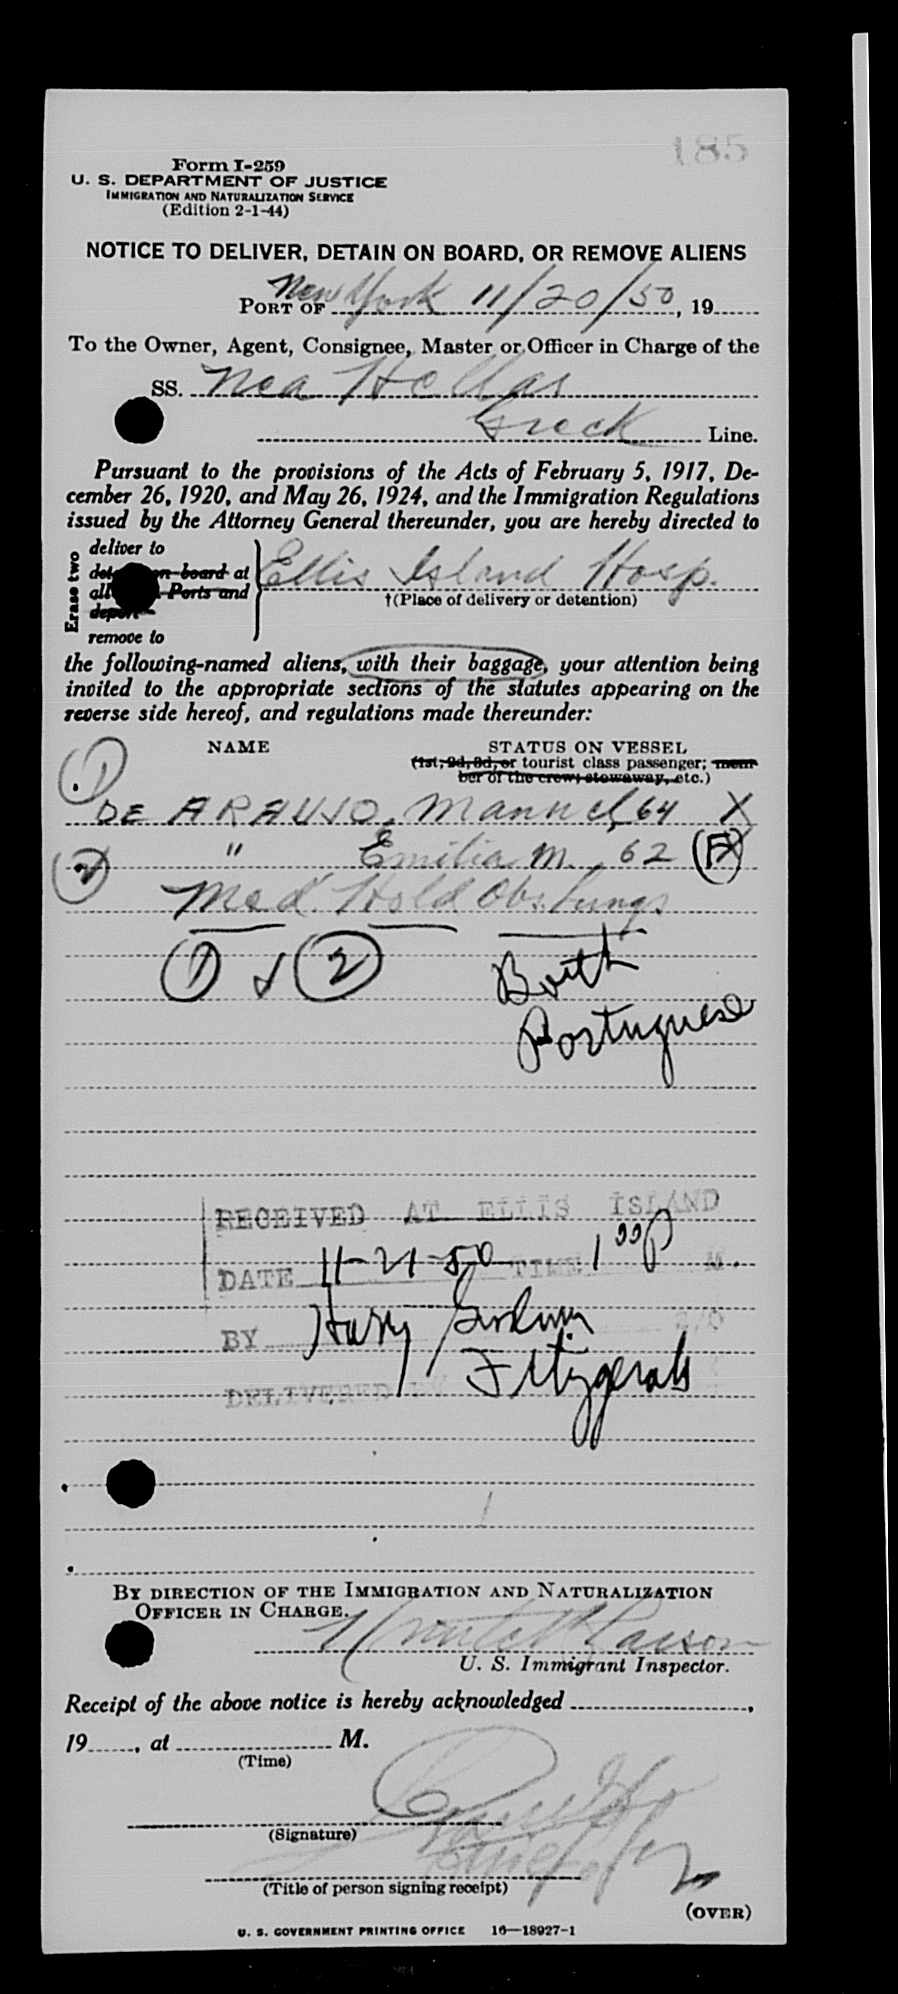 185
Form I-259
U. S. DEPARTMENT OF JUSTICE
IMMIGRATION AND NATURALIZATION SERVICE
(Edition 2-1-44)
NOTICE TO DELIVER, DETAIN ON BOARD, OR REMOVE ALIENS
PORT OF New York 11/20/50, 19
To the Owner, Agent, Consignee, Master or Officer in Charge of the
SS. Nea Hellas
Greek Line.
Pursuant to the provisions of the Acts of February 5, 1917, De-
cember 26, 1920, and May 26, 1924, and the Immigration Regulations
issued by the Attorney General thereunder, you are hereby directed to
Erase two
deliver to
on board at
all Ports and
deport
remove to
Ellis Island Hosp.
†(Place of delivery or detention)
the following-named aliens, with their baggage, your attention being
invited to the appropriate sections of the statutes appearing on the
reverse side hereof, and regulations made thereunder:
NAME STATUS ON VESSEL
(1st, 2d, 3d, or tourist class passenger; mem-
ber of the crew, stowaway, etc.)
1 DE ARAUJO, Manuel, 64 X
2 " Emilia M., 62
Med. Hold Obs. Lungs
1 & 2 Both
Portuguese
RECEIVED AT ELLIS ISLAND
DATE 11-21-50 TIME 1 00 P M.
BY Harry
Fitzgerald
DELIVERED BY
BY DIRECTION OF THE IMMIGRATION AND NATURALIZATION
OFFICER IN CHARGE.
U. S. Immigrant Inspector.
Receipt of the above notice is hereby acknowledged ,
19 , at M.
(Time)
(Signature)
(Title of person signing receipt)
(OVER)
U. S. GOVERNMENT PRINTING OFFICE 16—18927-1